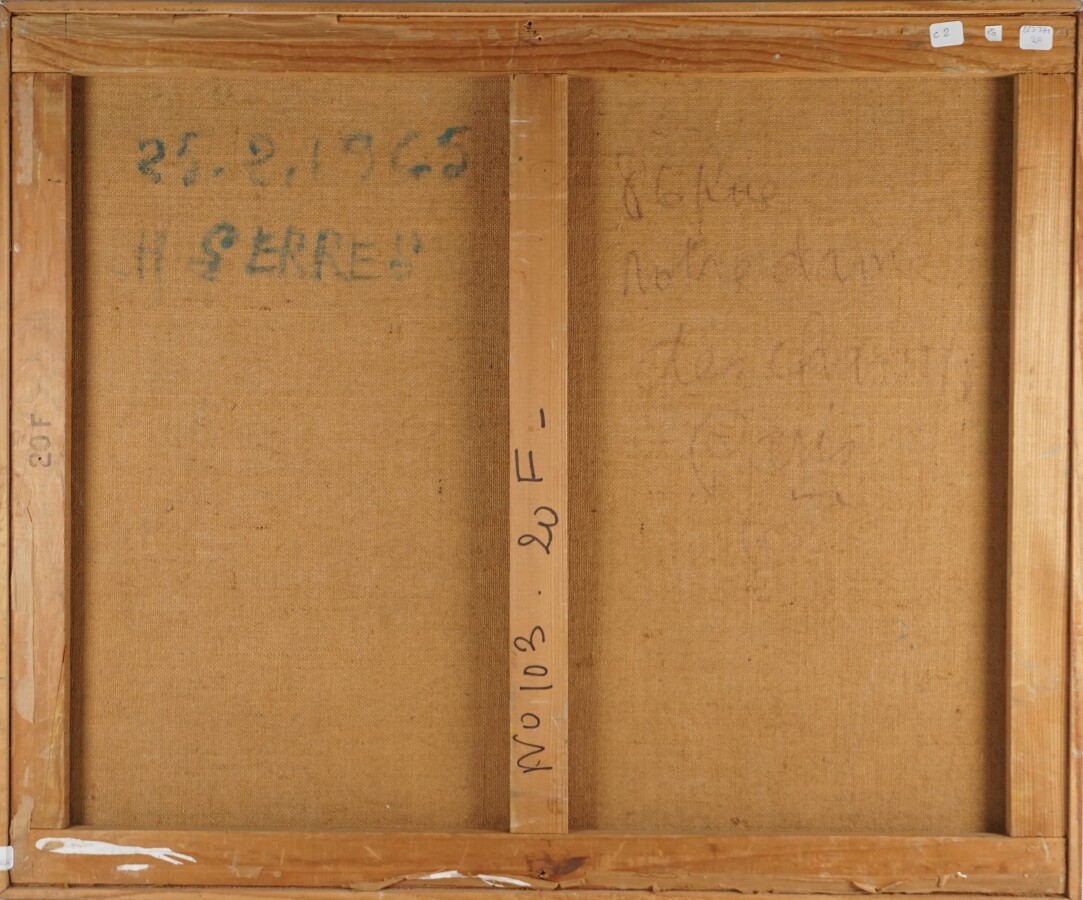 c 2
25.2.1965
H SERRES
86 Rue
notre dame
des champs
Paris
20F
NO 103 . 20 F -